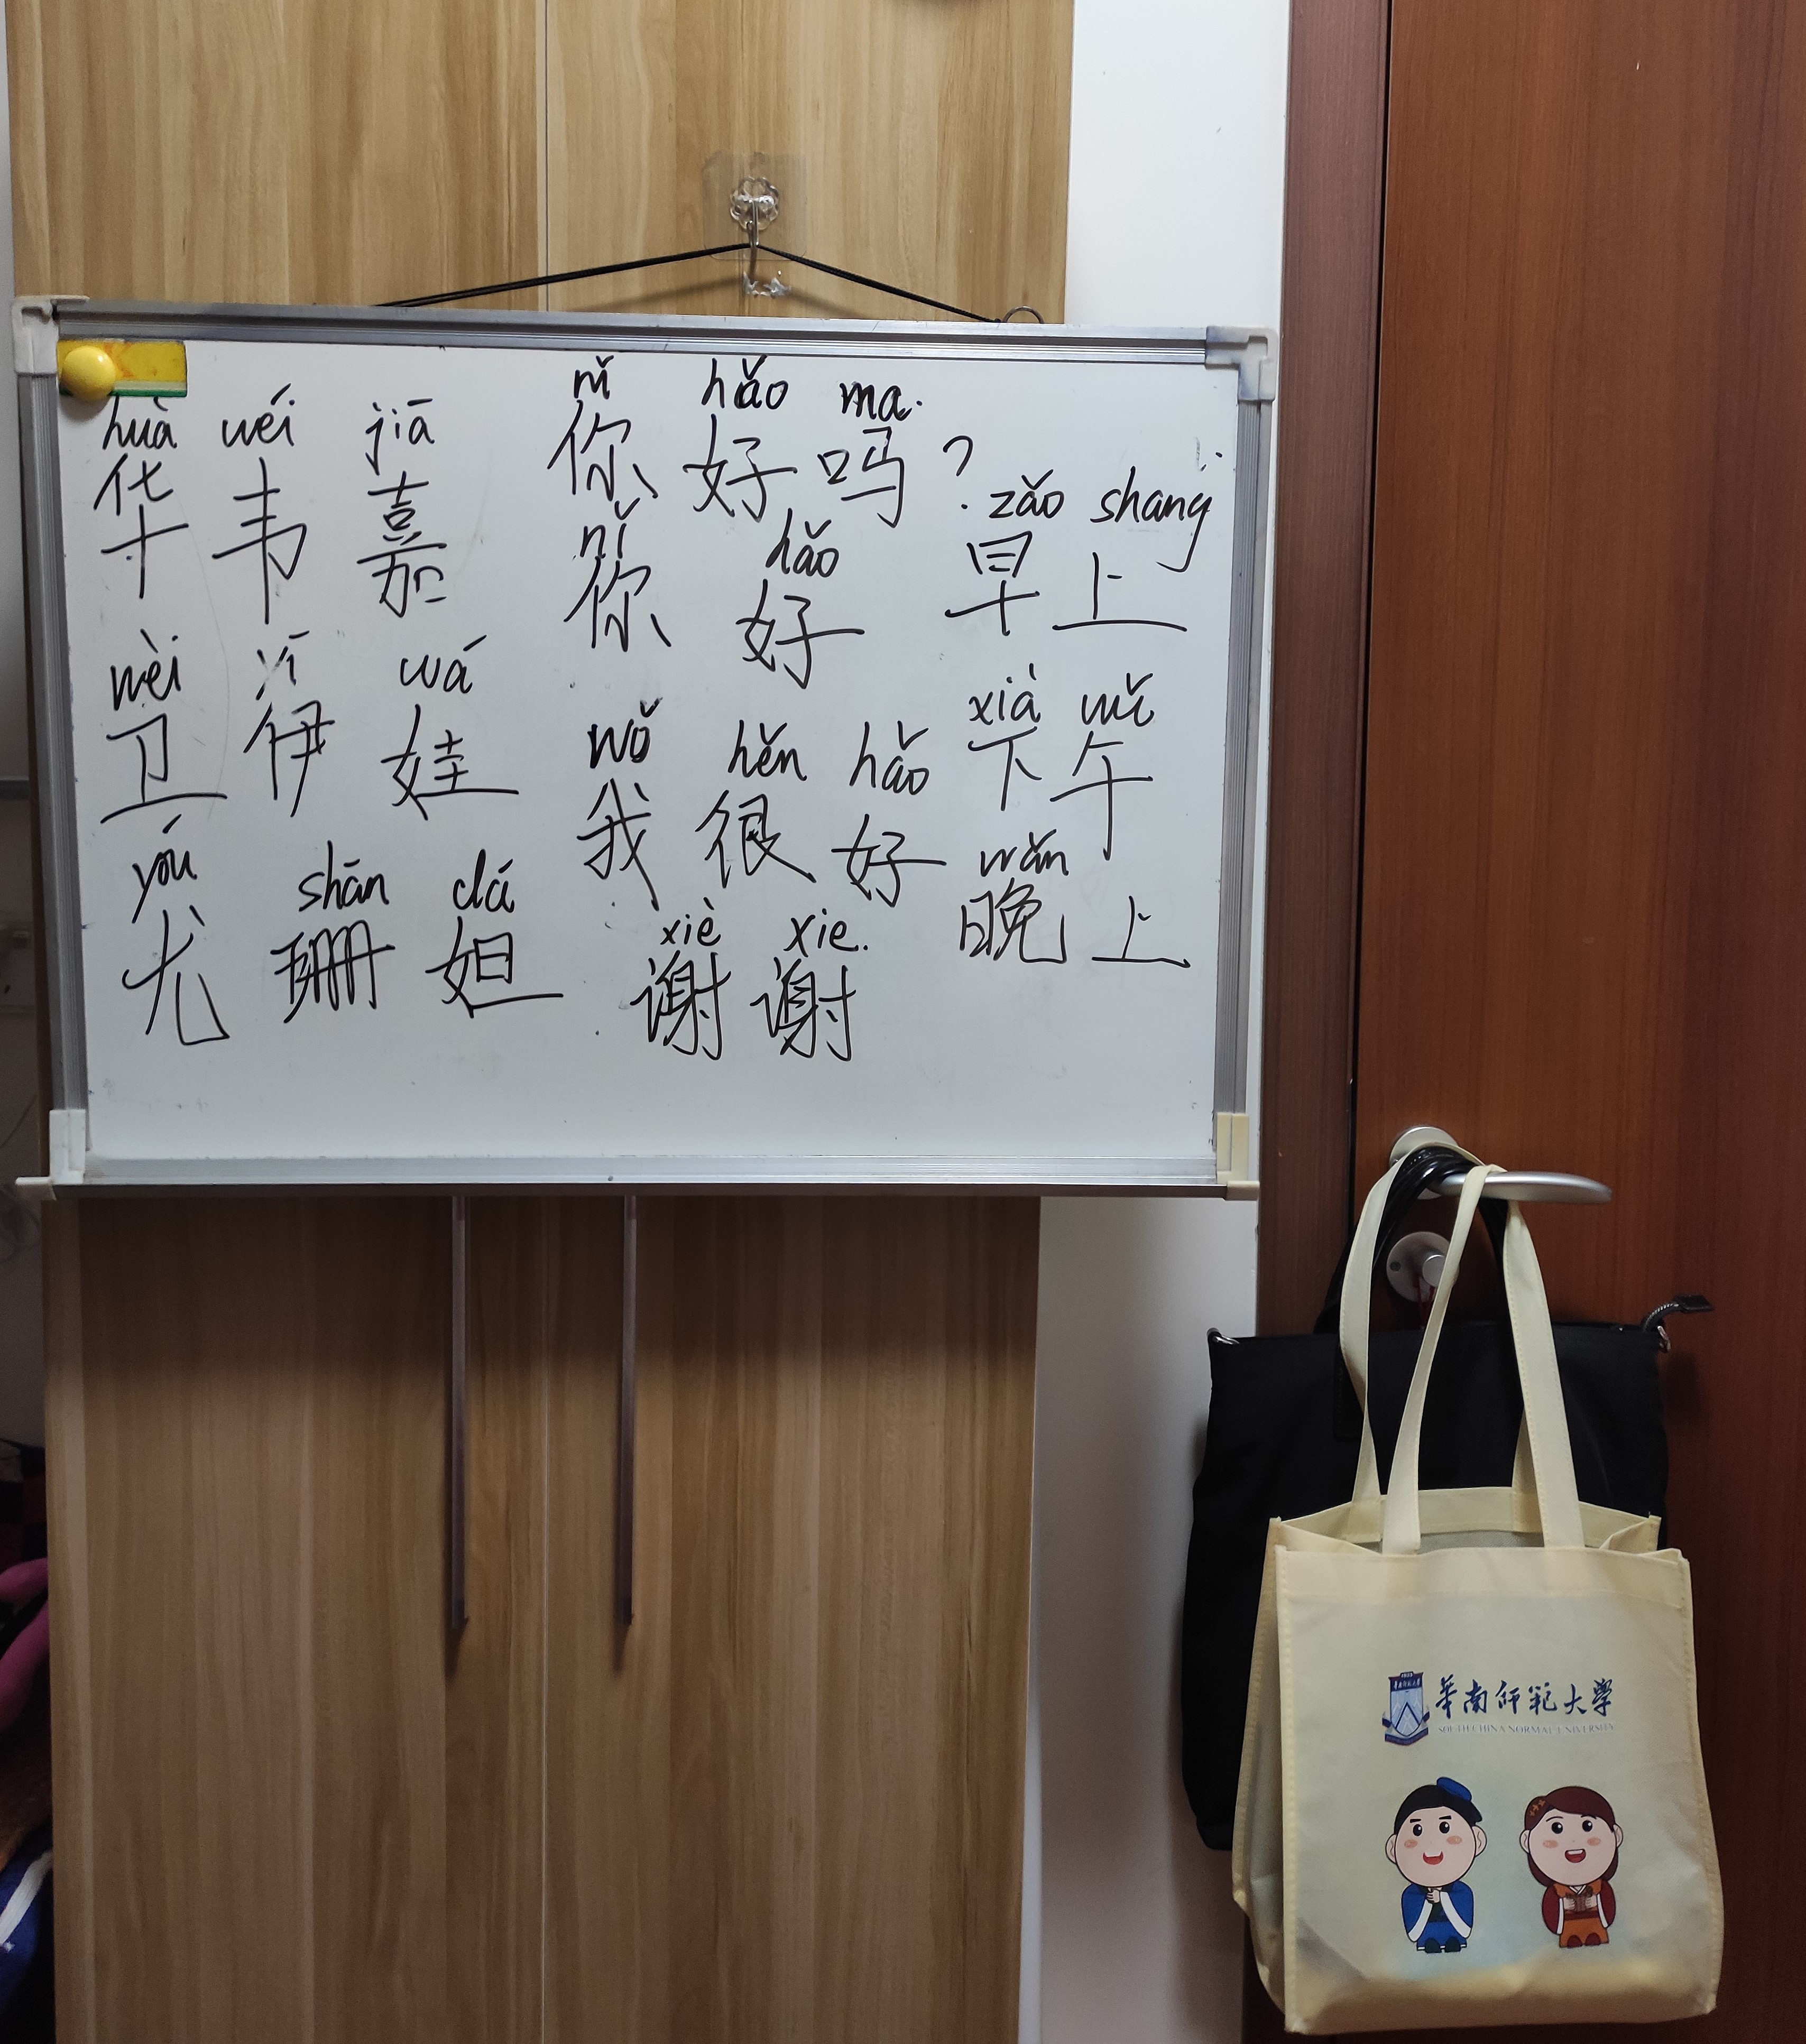 huà wéi jiā
华 韦 嘉
wèi yí wá
卫 伊 娃
yóu shān dá
尤 珊 妲
nǐ hǎo ma.
你 好 吗 ?
nǐ hǎo
你 好
wǒ hěn hǎo
我 很 好
xiè xie.
谢 谢
zǎo shang
早 上
xià wǔ
下 午
wǎn
晚 上
華南師範大學
SOUTH CHINA NORMAL UNIVERSITY